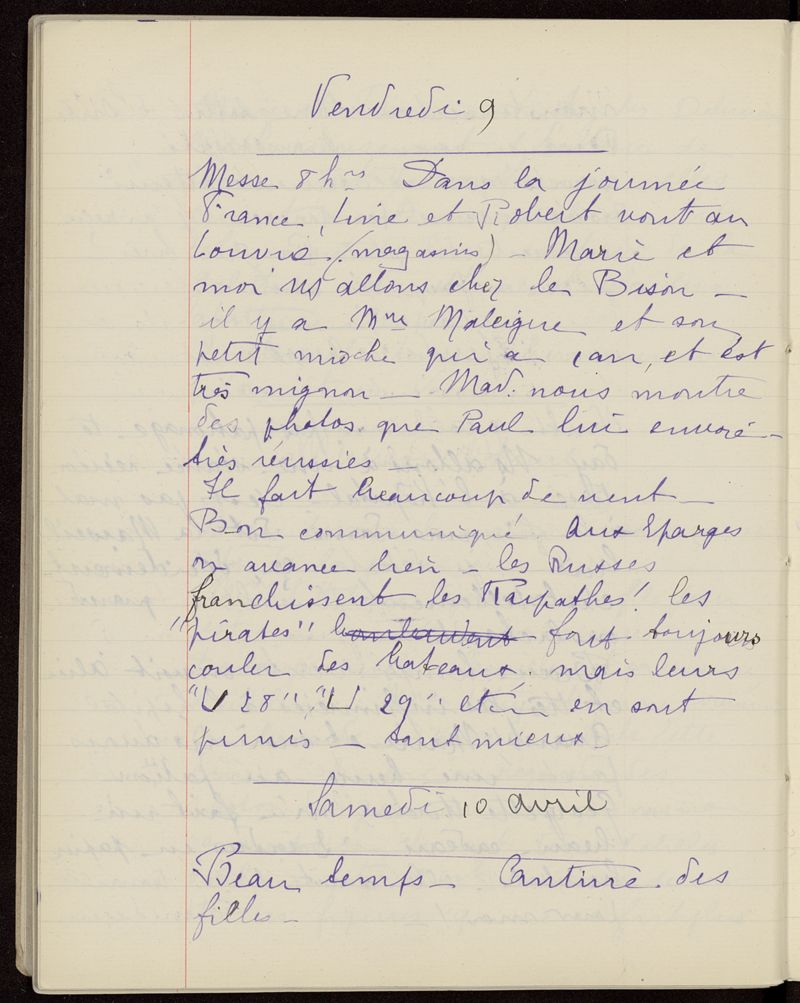 Vendredi 9
Messe 8 hres Dans la journée
France, Line et Robert vont au
Louvre (magasins) – Marie et
moi ns allons chez les Bison –
il y a Mme Maleigue et son
petit mioche qui a 1 an, et est
très mignon – Mad. nous montre
des photos que Paul lui envoie –
très réussies –
Il fait beaucoup de vent –
Bon communiqué. Aux Eparges
on avance bien – les Russes
franchissent les Karpathes! les
"pirates" font toujours
couler des bateaux, mais leurs
"U 28", "U 29" etc en sont
punis – tant mieux –
Samedi 10 avril
Beau temps – Cantine des
filles –